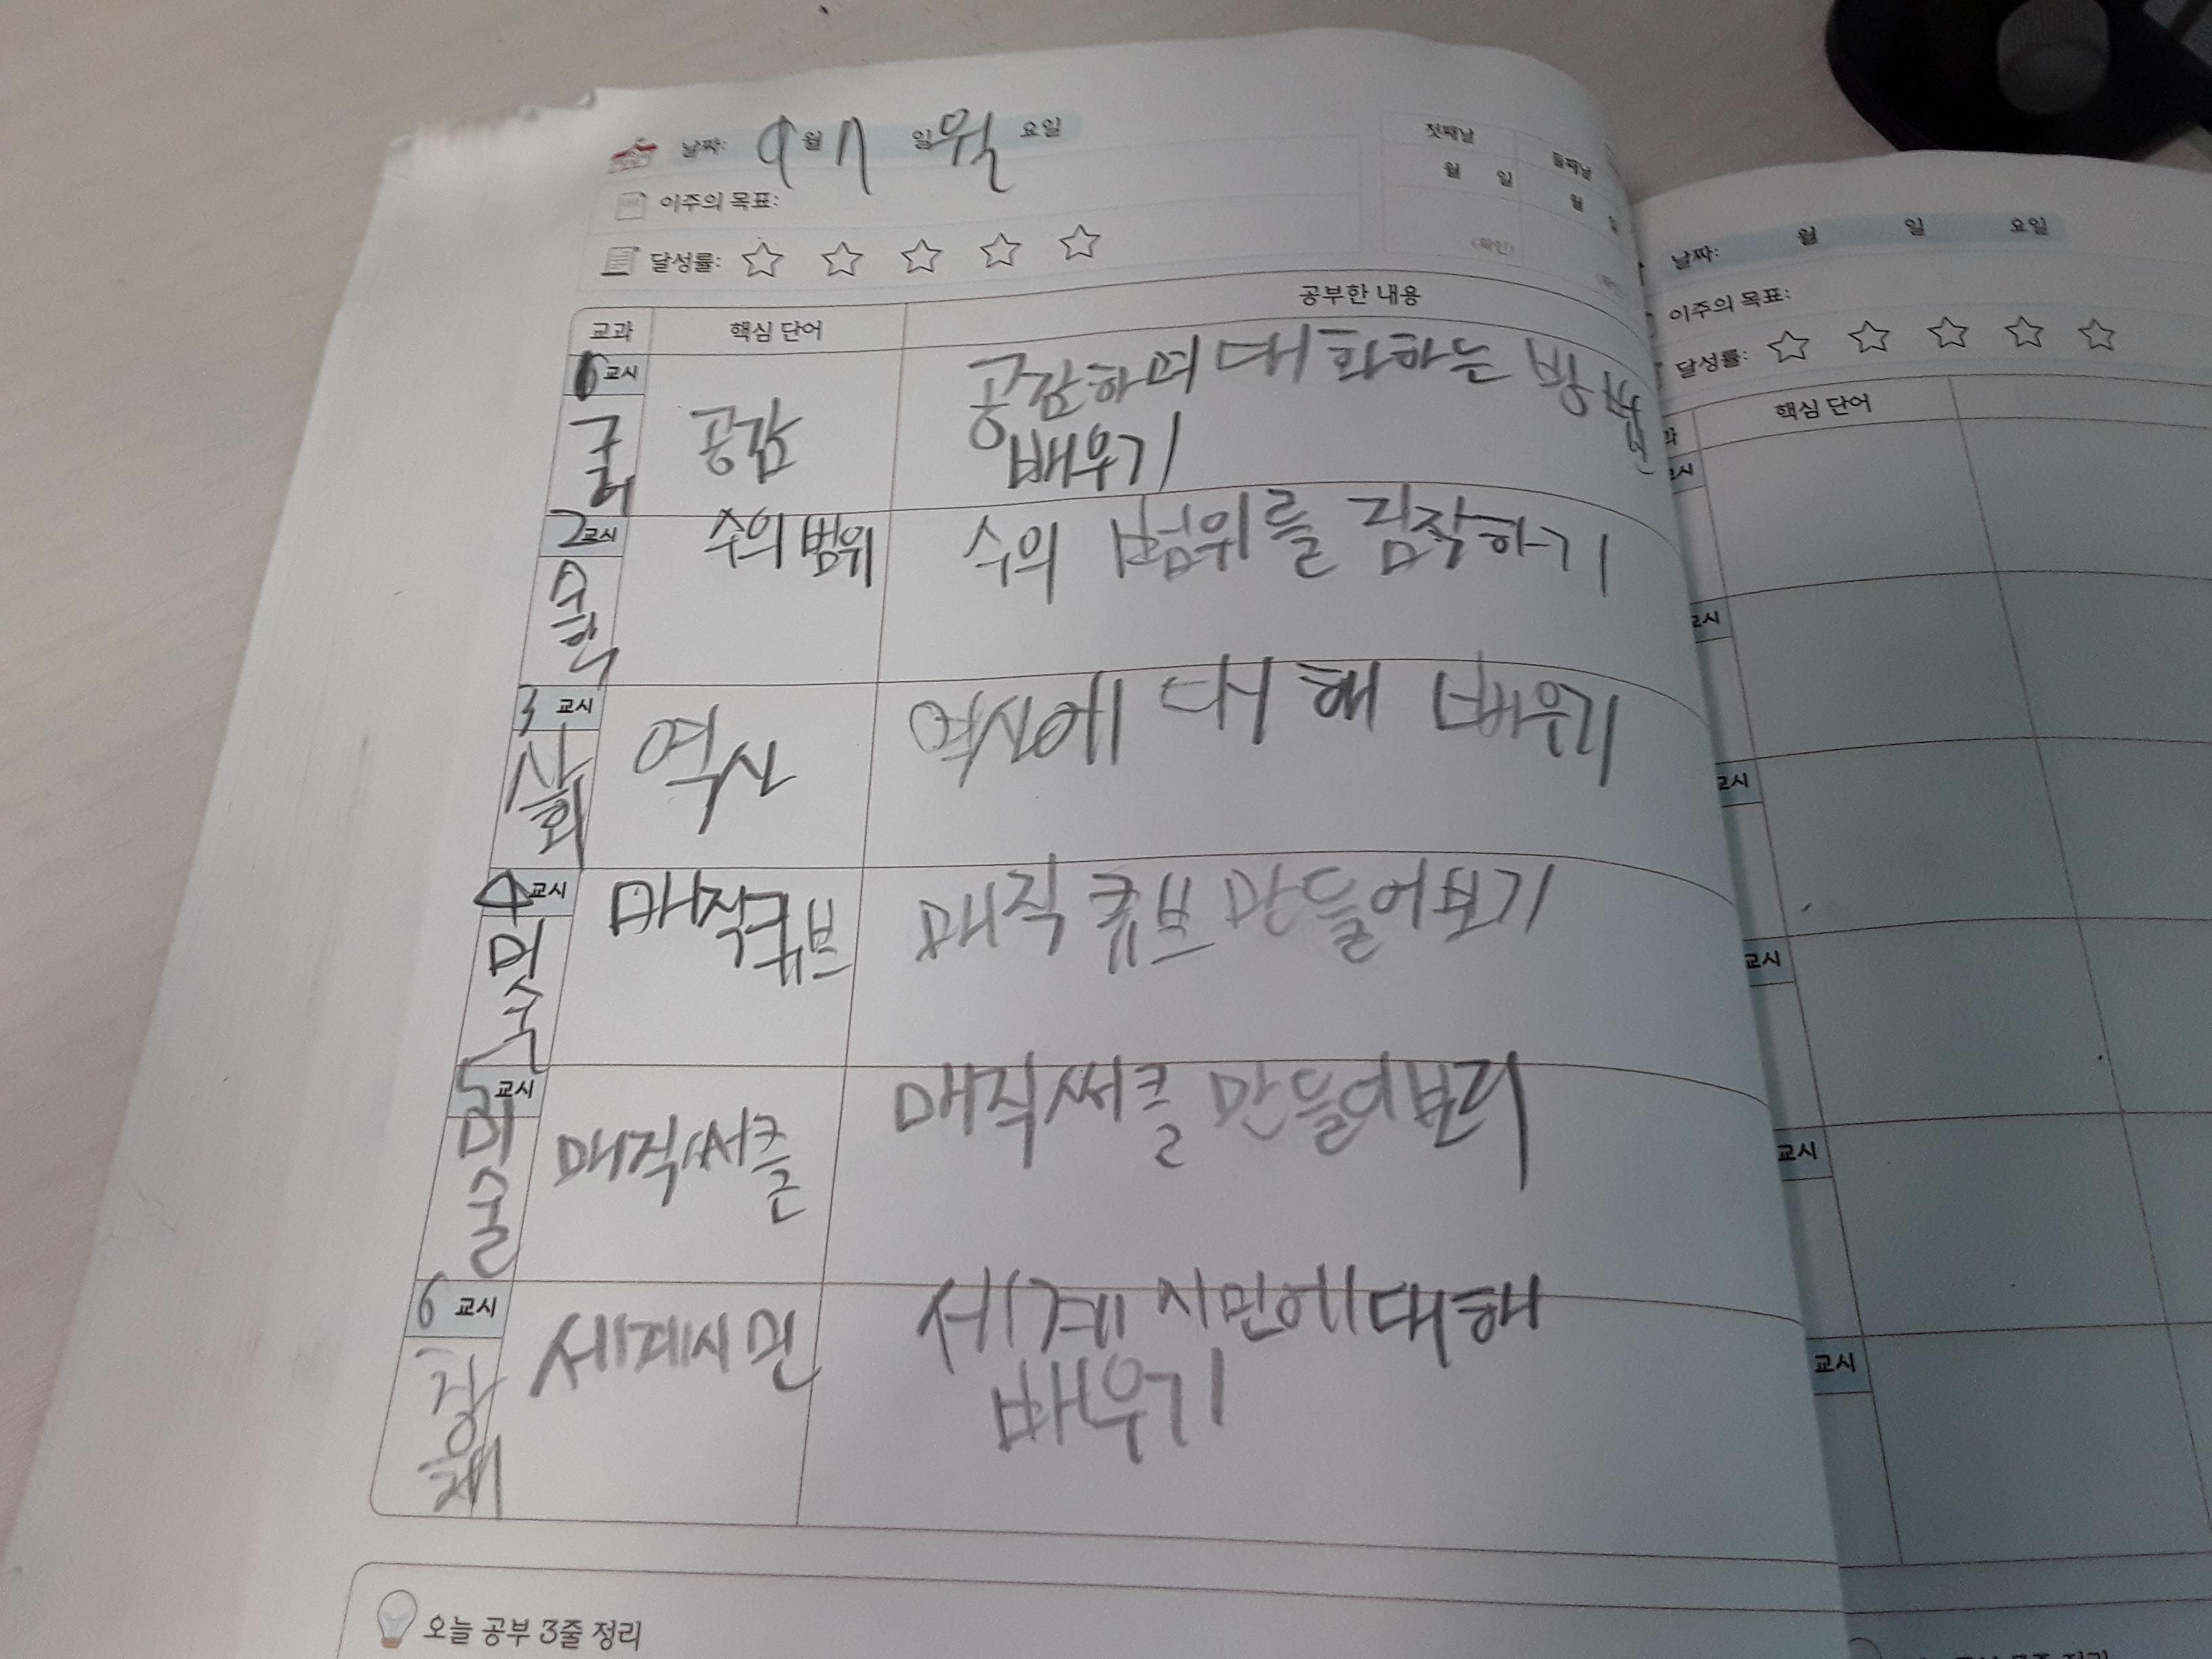 날짜: 9월 7일 월요일
이주의 목표:
달성률:
첫째날 둘째날
월 일 월 일
(확인)
교과 핵심 단어 공부한 내용
1교시
국어 공감 공감하며 대화하는 방법
배우기
2교시
수학 수의 범위 수의 범위를 짐작하기
3교시
사회 역사 역사에 대해 배우기
4교시
미술 매직큐브 매직 큐브 만들어보기
5교시
미술 매직써클 매직써클 만들어보기
6교시
창체 세계시민 세계 시민에 대해
배우기
오늘 공부 3줄 정리
날짜: 월 일 요일
이주의 목표:
달성률:
핵심 단어
교시
교시
교시
교시
교시
교시